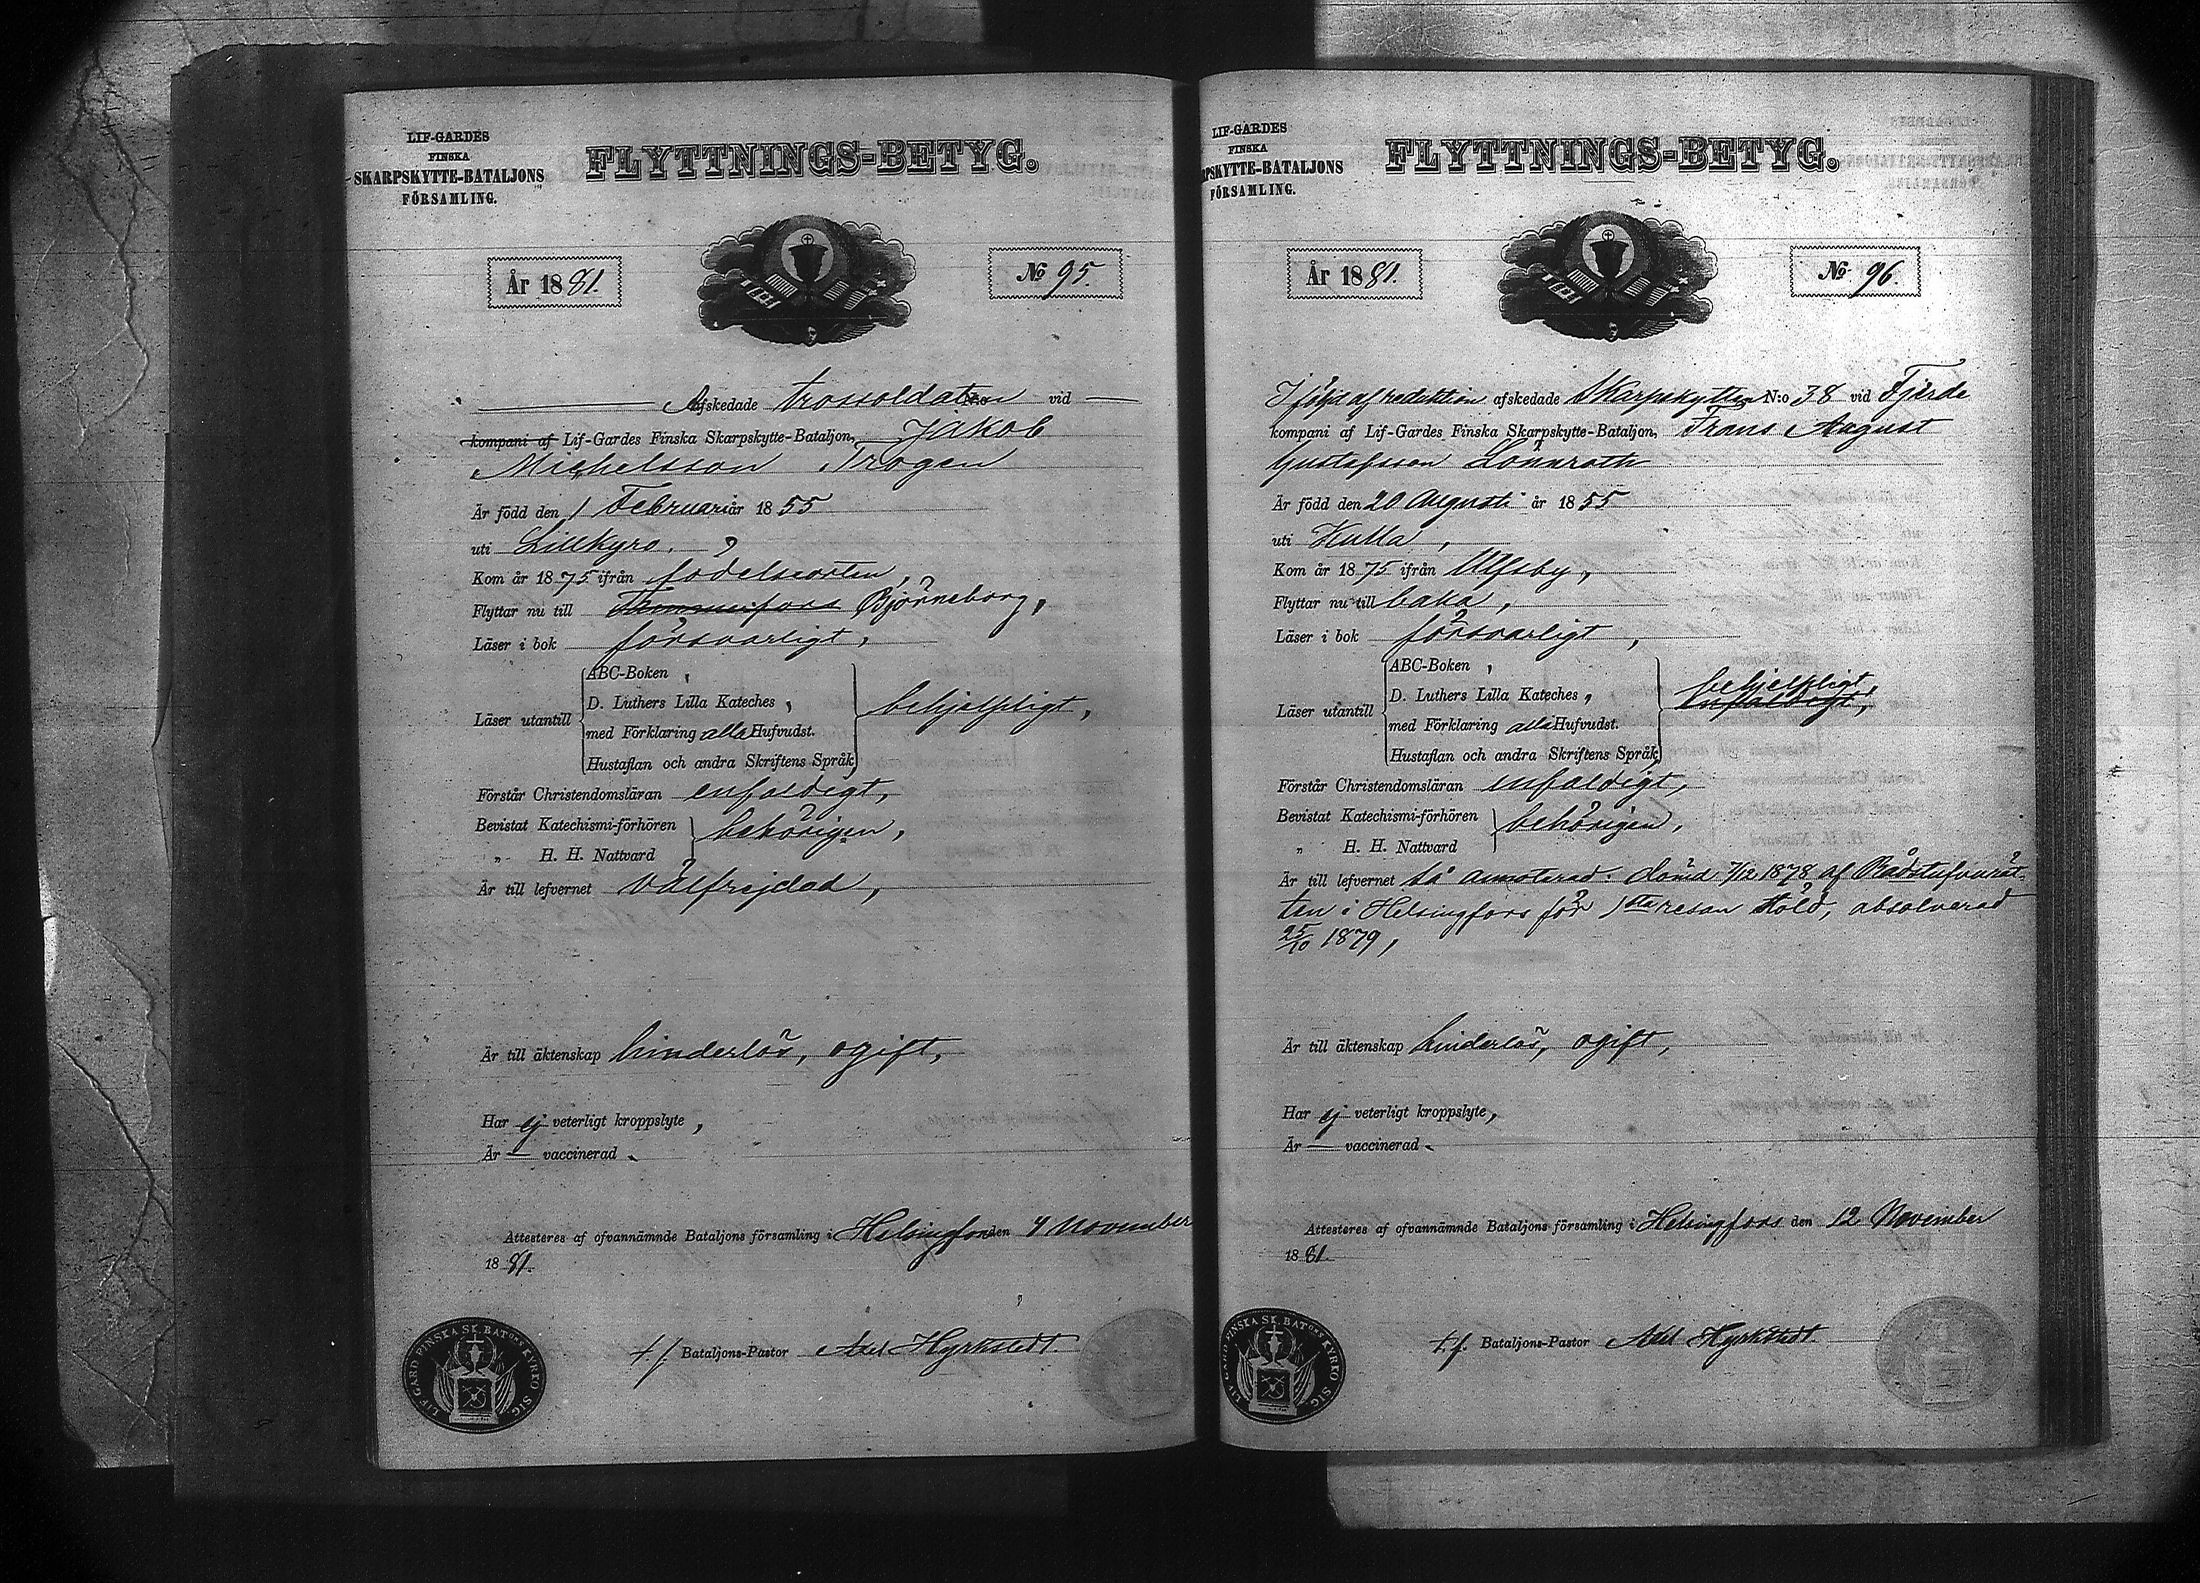 LIF-GARDES
FINSKA
SKARPSKYTTE-BATALJONS
FÖRSAMLING.
FLYTTNINGS-BETYG.
År 1881.
No 95.
Afskedade trossoldaten vid
kompani af Lif-Gardes Finska Skarpskytte-Bataljon, Jakob
Michelsson Trogen
Är född den 1 Februari år 1855
uti Lillkyro,
Kom år 1875 ifrån födelseorten,
Flyttar nu till Tammerfors Björneborg,
Läser i bok försvarligt,
Läser utantill
ABC-Boken,
D. Luthers Lilla Kateches,
med Förklaring alla Hufvudst.
Hustaflan och andra Skriftens Språk
behjelpligt,
Förstår Christendomsläran enfaldigt,
Bevistat Katechismi-förhören
„ H. H. Nattvard
behörigen,
Är till lefvernet välfrejdad,
Är till äktenskap hinderlös, ogift,
Har ej veterligt kroppslyte,
Är — vaccinerad.
Attesteras af ofvannämnde Bataljons församling i Helsingfors den 4 November
1881.
t.f. Bataljons-Pastor Axel Hyrkstedt.
LIF-GARD FINSKA SK. BATONS KYRKO SIG
LIF-GARDES
FINSKA
RPSKYTTE-BATALJONS
FÖRSAMLING.
FLYTTNINGS-BETYG.
År 1881.
No 96.
I följd af reduktion afskedade Skarpskytten N:o 38 vid Fjerde
kompani af Lif-Gardes Finska Skarpskytte-Bataljon, Frans August
Gustafsson Lönnroth
Är född den 20 Augusti år 1855
uti Kulla,
Kom år 1875 ifrån Ulfsby,
Flyttar nu till baka,
Läser i bok försvarligt,
Läser utantill
ABC-Boken,
D. Luthers Lilla Kateches,
med Förklaring alla Hufvudst.
Hustaflan och andra Skriftens Språk
behjelpligt,
enfaldigt,
Förstår Christendomsläran enfaldigt,
Bevistat Katechismi-förhören
„ H. H. Nattvard
behörigen,
Är till lefvernet så annoterad: dömd 7/12 1878 af Rådstufvurät-
ten i Helsingfors för 1sta resan stöld, absolverad
25/10 1879,
Är till äktenskap hinderlös, ogift,
Har ej veterligt kroppslyte,
Är — vaccinerad.
Attesteras af ofvannämnde Bataljons församling i Helsingfors den 12 November
1881.
t.f. Bataljons-Pastor Axel Hyrkstedt
LIF-GARD FINSKA SK. BATONS KYRKO SIG